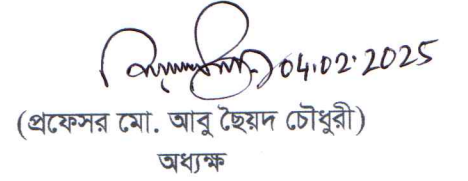 04.02.2025
(প্রফেসর মো. আবু ছৈয়দ চৌধুরী)
অধ্যক্ষ